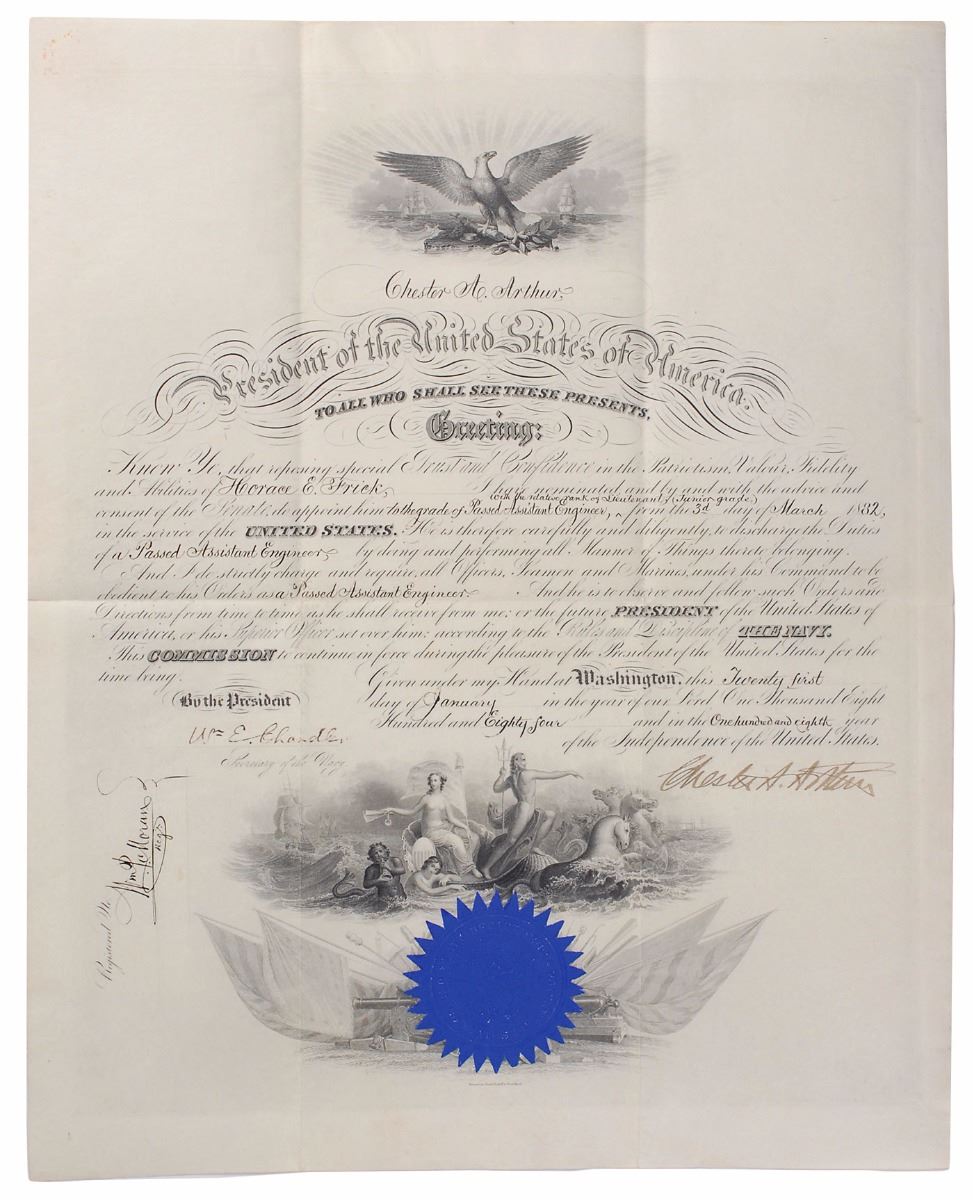 Chester A. Arthur,
President of the United States of America.
TO ALL WHO SHALL SEE THESE PRESENTS,
Greeting:
Know Ye, that reposing special Trust and Confidence in the Patriotism, Valour, Fidelity
and Abilities of Horace E. Frick, I have nominated and by and with the advice and
with the relative rank of Lieutenant, (Junior grade,)
consent of the Senate do appoint him to the grade of Passed Assistant Engineer, from the 3d day of March 1882,
in the service of the UNITED STATES. He is therefore carefully and diligently to discharge the Duties
of a Passed Assistant Engineer by doing and performing all Manner of Things thereto belonging.
And I do strictly charge and require all Officers, Seamen and Marines, under his Command to be
obedient to his Orders as a Passed Assistant Engineer. And he is to observe and follow such Orders and
Directions from time to time as he shall receive from me, or the future PRESIDENT of the United States of
America, or his Superior Officer set over him, according to the Rules and Discipline of THE NAVY.
This COMMISSION to continue in force during the pleasure of the President of the United States for the
time being.
Given under my Hand at Washington, this Twenty first
By the President
day of January in the year of our Lord One Thousand Eight
Hundred and Eighty four and in the One hundred and eighth year
of the Independence of the United States.
Wm E. Chandler
Secretary of the Navy.
Chester A. Arthur
Registered No.
Wm P. Moran
Regr